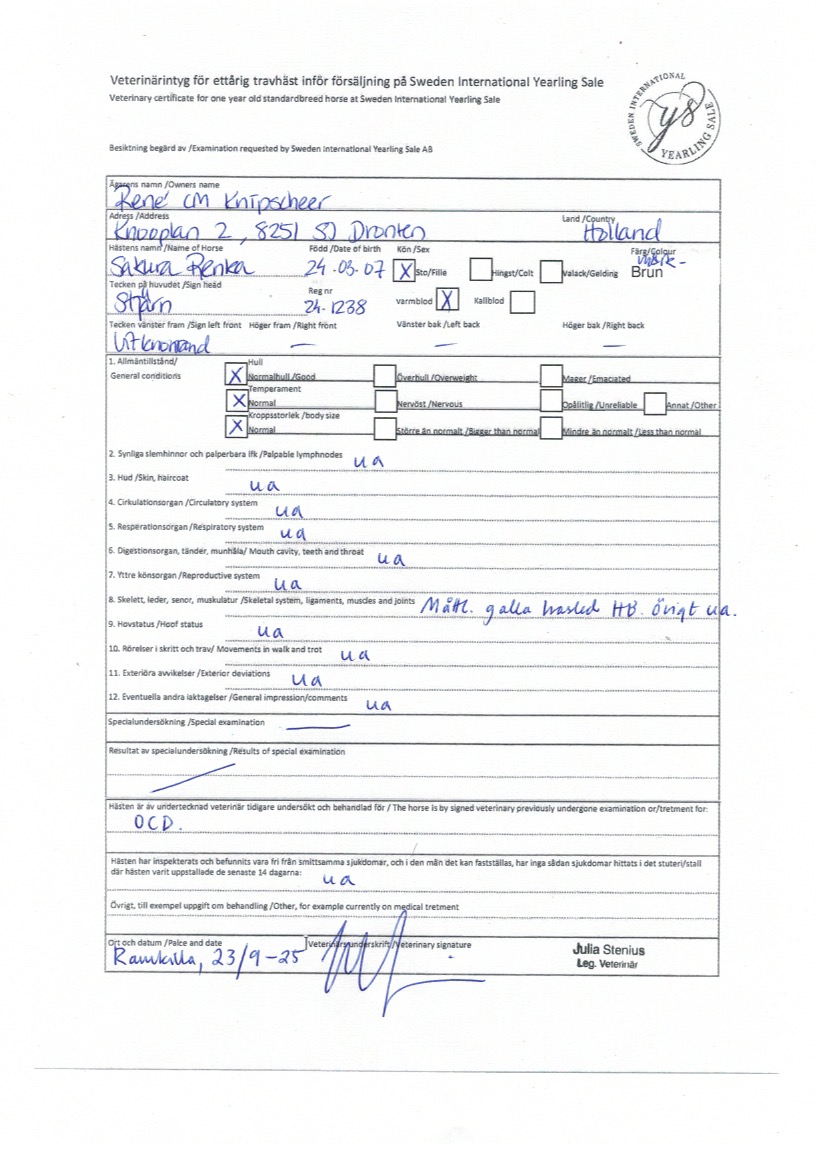 Veterinärintyg för ettårig travhäst inför försäljning på Sweden International Yearling Sale
Veterinary certificate for one year old standardbred horse at Sweden International Yearling Sale
SWEDEN INTERNATIONAL YEARLING SALE
ys
Besiktning begärd av /Examination requested by Sweden International Yearling Sale AB
Ägarens namn /Owners name
René CM Knipscheer
Adress /Address Land /Country
Knooplan 2, 8251 SJ Dronten Holland
Hästens namn /Name of Horse Född /Date of birth Kön /Sex Färg/Colour
Sakura Renka 24-03-07 X Sto/Fille Hingst/Colt Valack/Gelding mörk- Brun
Tecken på huvudet /Sign head Reg nr
Stjärn 24-1238 varmblod X Kallblod
Tecken vänster fram /Sign left front Höger fram /Right frönt Vänster bak /Left back Höger bak /Right back
Vit kronrand — — —
1. Allmäntillstånd/ Hull
General conditions X Normalhull /Good Överhull /Overweight Mager /Emaciated
Temperament
X Normal Nervöst /Nervous Opålitlig /Unreliable Annat /Other
Kroppsstorlek /body size
X Normal Större än normalt /Bigger than normal Mindre än normalt /Less than normal
2. Synliga slemhinnor och palperbara lfk /Palpable lymphnodes ua
3. Hud /Skin, haircoat ua
4. Cirkulationsorgan /Circulatory system ua
5. Resperationsorgan /Respiratory system ua
6. Digestionsorgan, tänder, munhåla/ Mouth cavity, teeth and throat ua
7. Yttre könsorgan /Reproductive system ua
8. Skelett, leder, senor, muskulatur /Skeletal system, ligaments, muscles and joints Måttl. galla hasled HB. Övrigt ua.
9. Hovstatus /Hoof status ua
10. Rörelser i skritt och trav/ Movements in walk and trot ua
11. Exteriöra avvikelser /Exterior deviations ua
12. Eventuella andra iaktagelser /General impression/comments ua
Specialundersökning /Special examination —
Resultat av specialundersökning /Results of special examination
Hästen är av undertecknad veterinär tidigare undersökt och behandlad för / The horse is by signed veterinary previously undergone examination or/tretment for:
OCD.
Hästen har inspekterats och befunnits vara fri från smittsamma sjukdomar, och i den mån det kan fastställas, har inga sådan sjukdomar hittats i det stuteri/stall
där hästen varit uppstallade de senaste 14 dagarna: ua
Övrigt, till exempel uppgift om behandling /Other, for example currently on medical tretment
Ort och datum /Palce and date Veterinärsunderskrift /Veterinary signature Julia Stenius
23/9-25 Leg. Veterinär